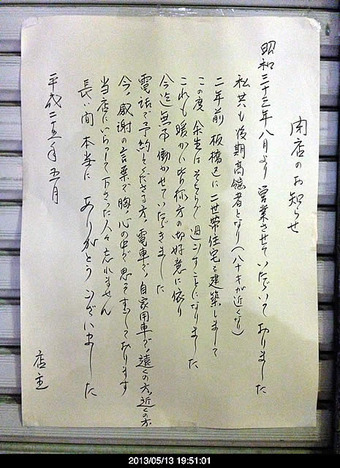 閉店のお知らせ
昭和三十三年八月より営業させていただいておりました
私共も後期高齢者となり(八十才が近くなり)
二年前板橋区に二世帯住宅を建築しまして
この度余生はそちらで過ごすことになりました
これも暖かい皆様方の御好意に依り
今迄無事働かせていただきました
電話で予約をくださる方、電車で、自家用車で、遠くの方、近くの方
今、感謝の言葉で胸、心の中で思って おります
当店にいらして下さった人々忘れません
長い間本当に ありがとうございました
平成二十五年五月
店主
2013/05/13 19:51:01